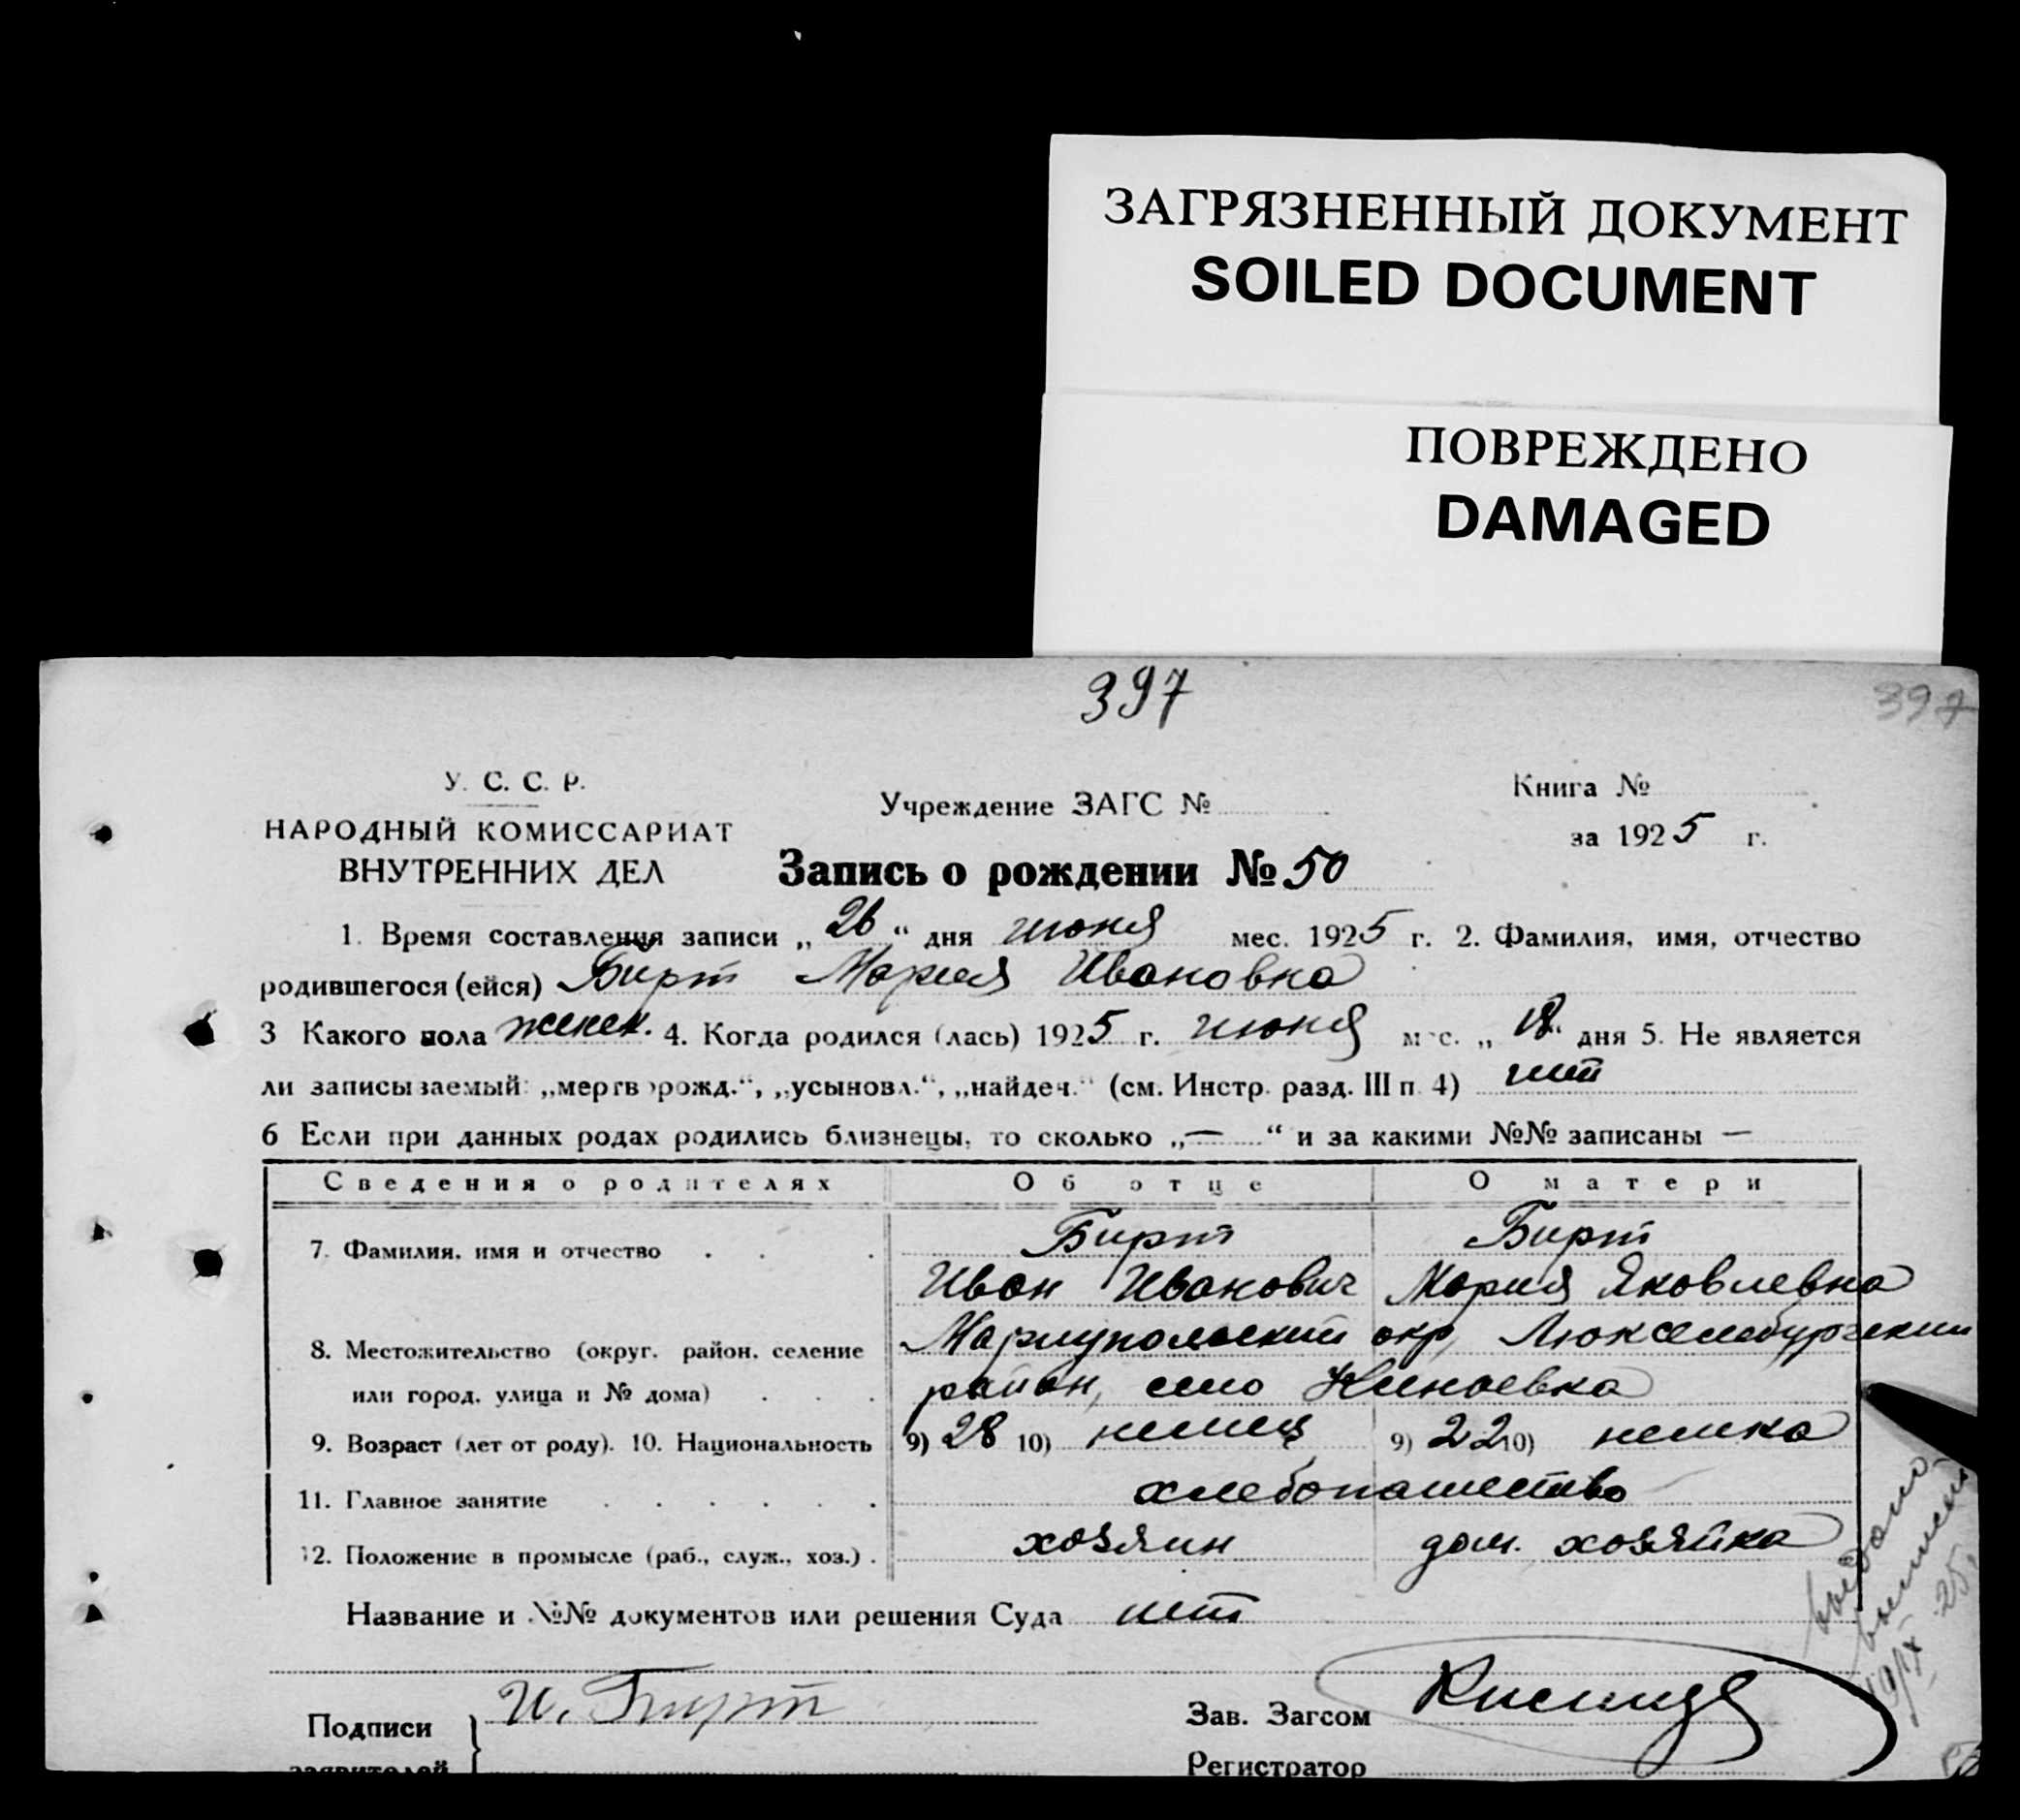 ЗАГРЯЗНЕННЫЙ ДОКУМЕНТ
SOILED DOCUMENT
ПОВРЕЖДЕНО
DAMAGED
397
397
У. С. С. Р.
НАРОДНЫЙ КОМИССАРИАТ
ВНУТРЕННИХ ДЕЛ
Учреждение ЗАГС №
Книга №
за 1925 г.
Запись о рождении № 50
1. Время составления записи „26“ дня июня мес. 1925 г. 2. Фамилия, имя, отчество
родившегося (ейся) Бирт Мария Ивановна
3 Какого пола женск. 4. Когда родился (лась) 1925 г. июня мес. „18“ дня 5. Не является
ли записываемый: „мертворожд.“, „усыновл.“, „найден.“ (см. Инстр. разд. III п. 4) нет
6 Если при данных родах родились близнецы, то сколько „—“ и за какими №№ записаны —
Сведения о родителях Об отце О матери
7. Фамилия, имя и отчество Бирт Бирт
Иван Иванович Мария Яковлевна
8. Местожительство (округ, район, селение Мариупольский окр, Люксембургский
или город, улица и № дома) район, село
9. Возраст (лет от роду). 10. Национальность 9) 28 10) немец 9) 22 10) немка
11. Главное занятие хлебопашество
12. Положение в промысле (раб., служ., хоз.) хозяин дом. хозяйка
Название и №№ документов или решения Суда нет
Подписи И. Бирт
заявителей
Зав. Загсом
Регистратор
выдано
выпись
25